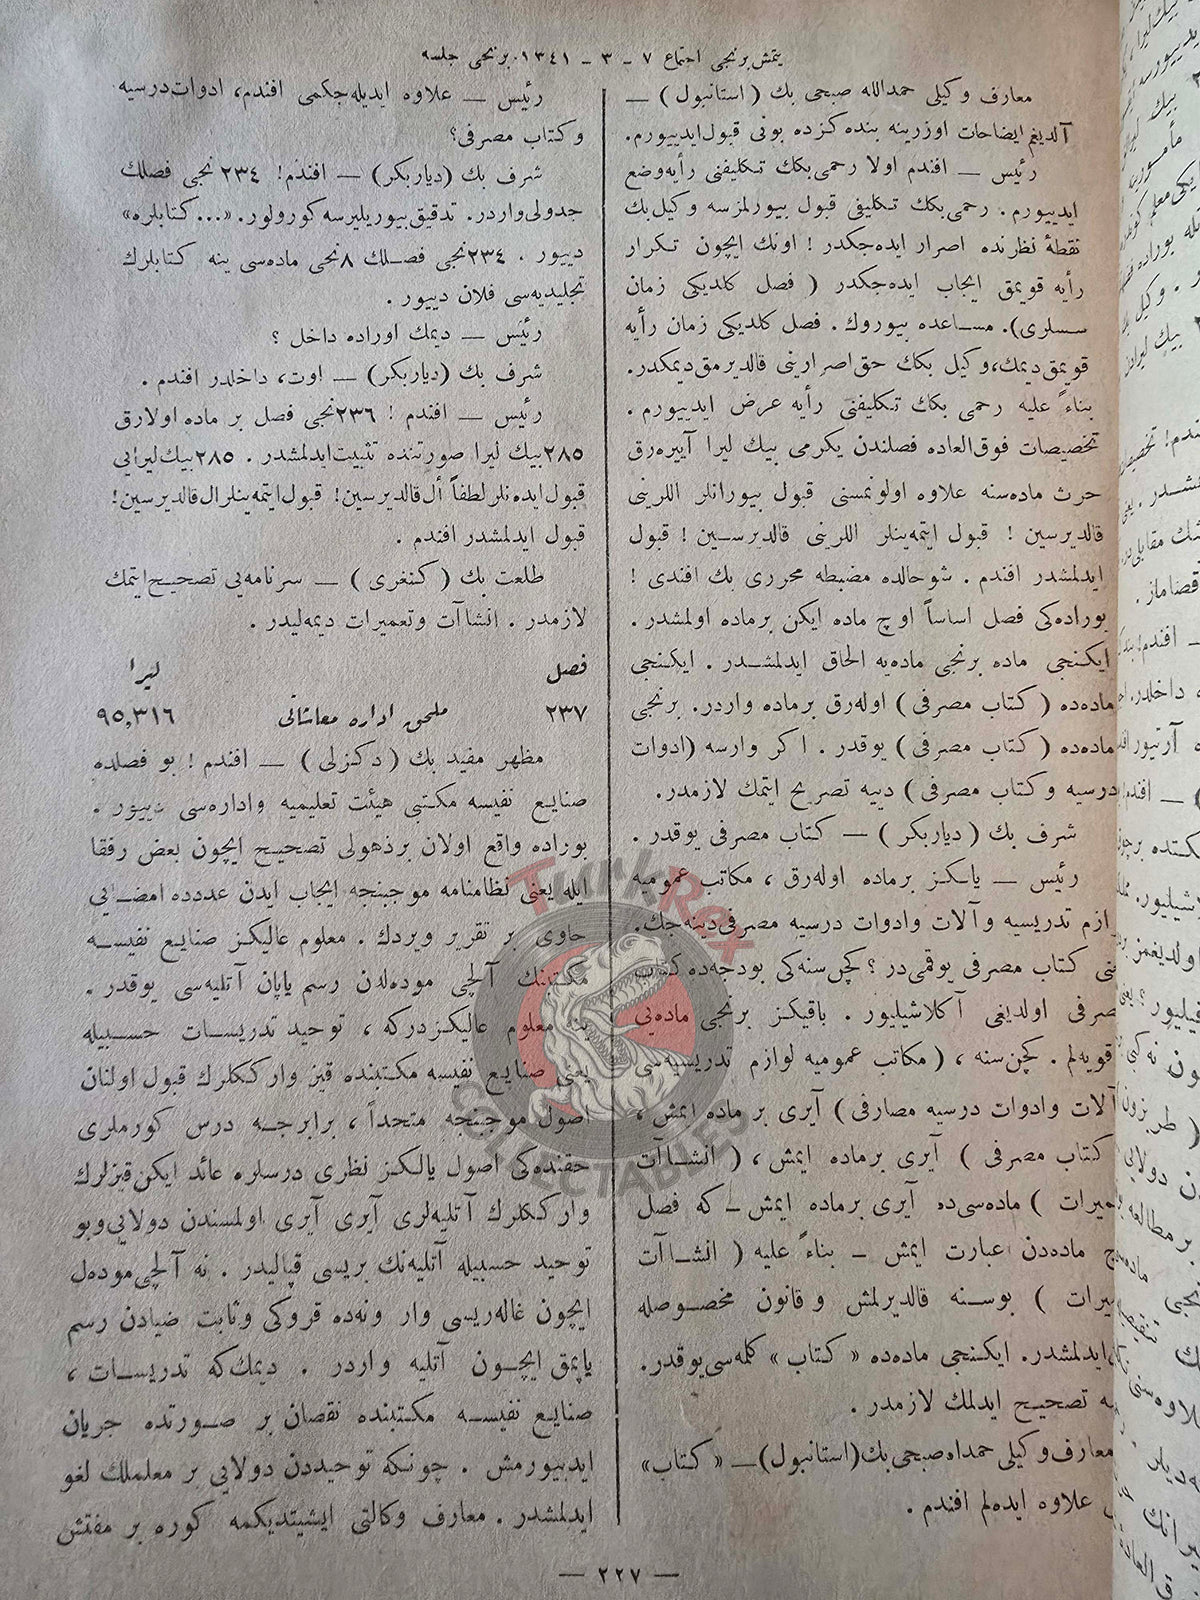 يتمش برنجى اجتماع ٧ ـ ٣ ـ ١٣٤١ برنجى جلسه
معارف وكيلى حمدالله صبحى بك (استانبول) —
آلديغم ايضاحات اوزرينه بنده كزده بونى قبول ايدييورم.
رئيس — افندم اولا رحمى بكك تكليفنى رأيه وضع
ايدييورم . رحمى بكك تكليفى قبول بيورلمزسه وكيل بك
نقطهٔ نظرنده اصرار ايده جكدر ! اونك ايچون تكرار
رأيه قويمق ايجاب ايده جكدر ( فصل كلديكى زمان
سسلرى). مساعده بيوروك . فصل كلديكى زمان رأيه
قويمق ديمك، وكيل بكك حق اصرارينى قالديرمق ديمكدر.
بناءً عليه رحمى بكك تكليفنى رأيه عرض ايدييورم .
تخصيصات فوق العاده فصلندن يكرمى بيك ليرا آييره رق
حرث ماده سنه علاوه اولونمسنى قبول بيورانلر اللرينى
قالديرسين ! قبول ايتمه ينلر اللرينى قالديرسين ! قبول
ايدلمشدر افندم . شو حالده مضبطه محررى بك افندى !
بوراده كى فصل اساساً اوچ ماده ايكن برماده اولمشدر .
ايكنجى ماده برنجى ماده يه الحاق ايدلمشدر . ايكنجى
ماده ده ( كتاب مصرفى ) اوله رق برماده واردر. برنجى
ماده ده ( كتاب مصرفى ) يوقدر . اكر وارسه (ادوات
درسيه و كتاب مصرفى ) دييه تصريح ايتمك لازمدر.
شرف بك ( دياربكر ) — كتاب مصرفى يوقدر .
رئيس — يالكز برماده اوله رق ، مكاتب عموميه
ازم تدريسيه و آلات وادوات درسيه مصرفى دينه جك.
كتاب مصرفى يوقمى در ؟ كچن سنه كى بودجه ده كتاب
صرفى اولديغى آكلاشيليور . باقيكز برنجى ماده يى
قويه لم . كچن سنه ، ( مكاتب عموميه لوازم تدريسيه سى
آلات وادوات درسيه مصارفى ) آيرى بر ماده ايمش ،
كتاب مصرفى ) آيرى برماده ايمش ، ( انشاآت
ميرات ) ماده سى ده آيرى برماده ايمش ـ كه فصل
ماده دن عبارت ايمش ـ بناءً عليه ( انشاآت
ميرات ) بوسنه قالديرلمش و قانون مخصوصله
ايدلمشدر. ايكنجى ماده ده « كتاب » كلمه سى يوقدر.
تصحيح ايدلمك لازمدر .
معارف وكيلى حمداه صبحى بك (استانبول) — « كتاب »
علاوه ايده لم افندم .
رئيس — علاوه ايديله جكمى افندم، ادوات درسيه
و كتاب مصرفى؟
شرف بك (دياربكر) — افندم! ٢٣٤ نجى فصلك
جدولى واردر. تدقيق بيوريليرسه كورولور. «... كتابلره»
دييور . ٢٣٤ نجى فصلك ٨ نجى ماده سى ينه كتابلرك
تجليديه سى فلان دييور .
رئيس — ديمك اوراده داخل ؟
شرف بك (دياربكر) — اوت، داخلدر افندم .
رئيس — افندم ! ٢٣٦ نجى فصل بر ماده اولارق
٢٨٥ بيك ليرا صورتنده تثبيت ايدلمشدر . ٢٨٥ بيك ليرايى
قبول ايده نلر لطفاً أل قالديرسين! قبول ايتمه ينلر ال قالديرسين!
قبول ايدلمشدر افندم .
طلعت بك ( كنغرى ) — سرنامه يى تصحيح ايتمك
لازمدر . انشاآت وتعميرات ديمه ليدر .
فصل ليرا
٢٣٧ ملحق اداره معاشاتى ٩٥,٣١٦
مظهر مفيد بك ( دكزلى ) — افندم ! بو فصلده
صنايع نفيسه مكتبى هيئت تعليميه واداره سى دييور .
بوراده واقع اولان برذهولى تصحيح ايچون بعض رفقا
ايله يعنى نظامنامه موجبنجه ايجاب ايدن عددده امضايى
حاوى بر تقرير ويردك . معلوم عاليكز صنايع نفيسه
مكتبنك آلچى موده لدن رسم ياپان آتليه سى يوقدر .
ينه معلوم عاليكزدركه ، توحيد تدريسات حسبيله
يعنى صنايع نفيسه مكتبنده قيز وار ككلرك قبول اولنان
اصول موجبنجه متحداً ، برابرجه درس كورملرى
حقنده كى اصول يالكز نظرى درسلره عائد ايكن قيزلرك
وار ككلرك آتليه لرى آيرى آيرى اولمسندن دولايى وبو
توحيد حسبيله آتليه نك بريسى قپاليدر . نه آلچى موده ل
ايچون غاله ريسى وار ونه ده قروكى وثابت ضيادن رسم
ياپمق ايچون آتليه واردر . ديمك كه تدريسات ،
صنايع نفيسه مكتبنده نقصان بر صورتده جريان
ايدييورمش . چونكه توحيددن دولايى بر معلملك لغو
ايدلمشدر . معارف وكالتى ايشيتديكمه كوره بر مفتش
— ٢٢٧ —